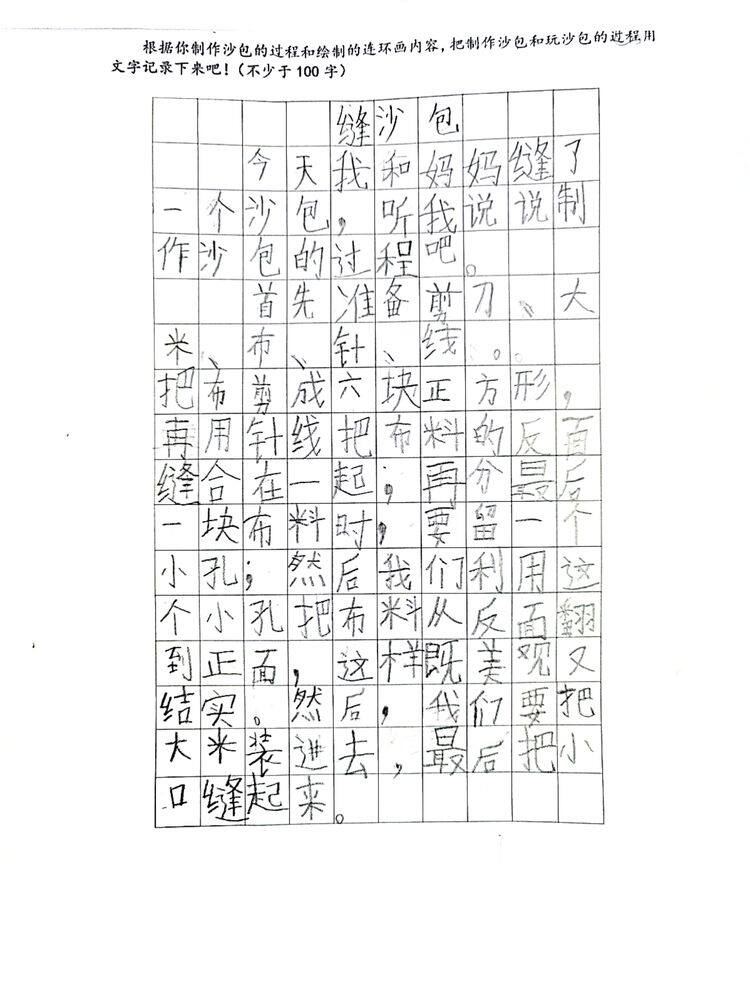 根据你制作沙包的过程和绘制的连环画内容，把制作沙包和玩沙包的过程用
文字记录下来吧！（不少于100字）
缝沙包
今天我和妈妈缝了
一个沙包，听我说说制
作沙包的过程吧。
首先准备剪刀、大
米、布、针、线。。
把布剪成六块正方形，
再用针线把布料的反面
缝合在一起；再分最后
一块布料时，要留一个
小孔；然后我们利用这
个小孔把布料从反面翻
到正面，这样既美观又
结实。然后，我们要把
大米装进去，最后把小
口缝起来。